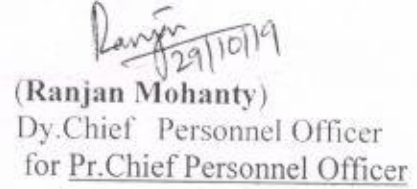 Ranjn
29/10/19
(Ranjan Mohanty)
Dy.Chief Personnel Officer
for Pr.Chief Personnel Officer